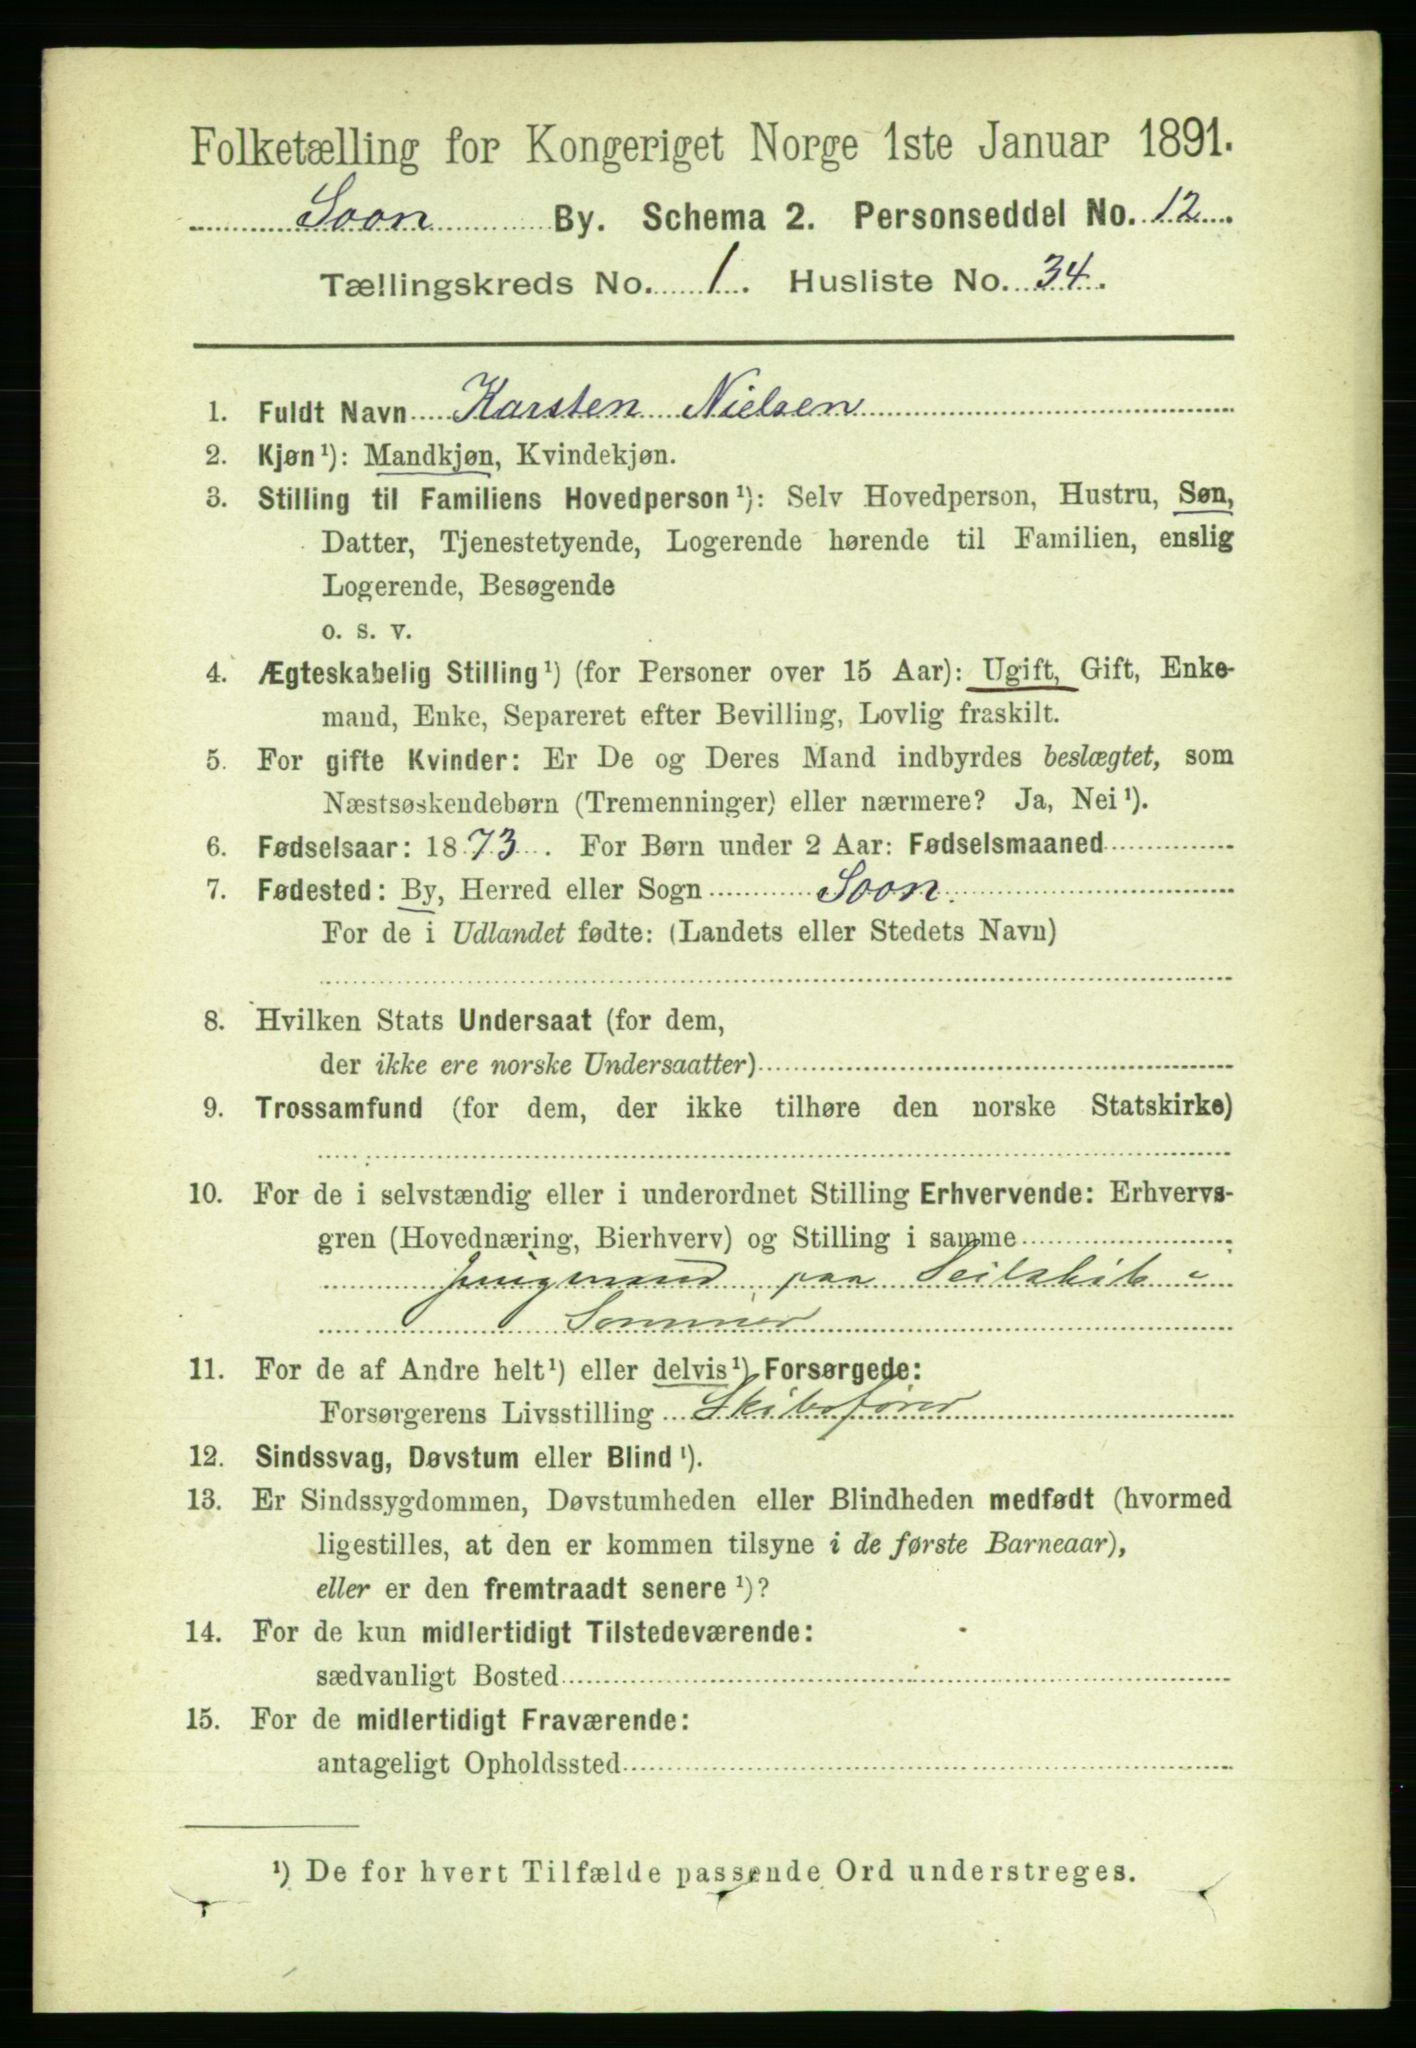 Folketælling for Kongeriget Norge 1ste Januar 1891.
Soon By. Schema 2. Personseddel No. 12
Tællingskreds No. 1. Husliste No. 34.
1. Fuldt Navn Karsten Nielsen
2. Kjøn¹): Mandkjøn, Kvindekjøn.
3. Stilling til Familiens Hovedperson¹): Selv Hovedperson, Hustru, Søn,
Datter, Tjenestetyende, Logerende hørende til Familien, enslig
Logerende, Besøgende
o. s. v.
4. Ægteskabelig Stilling¹) (for Personer over 15 Aar): Ugift, Gift, Enke-
mand, Enke, Separeret efter Bevilling, Lovlig fraskilt.
5. For gifte Kvinder: Er De og Deres Mand indbyrdes beslægtet, som
Næstsøskendebørn (Tremenninger) eller nærmere? Ja, Nei¹).
6. Fødselsaar: 1873. For Børn under 2 Aar: Fødselsmaaned
7. Fødested: By, Herred eller Sogn Soon.
For de i Udlandet fødte: (Landets eller Stedets Navn)
8. Hvilken Stats Undersaat (for dem,
der ikke ere norske Undersaatter)
9. Trossamfund (for dem, der ikke tilhøre den norske Statskirke)
10. For de i selvstændig eller i underordnet Stilling Erhvervende: Erhvervs-
gren (Hovednæring, Bierhverv) og Stilling i samme
Jungmand paa Seilskib i
Sommer
11. For de af Andre helt¹) eller delvis¹) Forsørgede:
Forsørgerens Livsstilling Skibsfører
12. Sindssvag, Døvstum eller Blind¹).
13. Er Sindssygdommen, Døvstumheden eller Blindheden medfødt (hvormed
ligestilles, at den er kommen tilsyne i de første Barneaar),
eller er den fremtraadt senere¹)?
14. For de kun midlertidigt Tilstedeværende:
sædvanligt Bosted
15. For de midlertidigt Fraværende:
antageligt Opholdssted
¹) De for hvert Tilfælde passende Ord understreges.